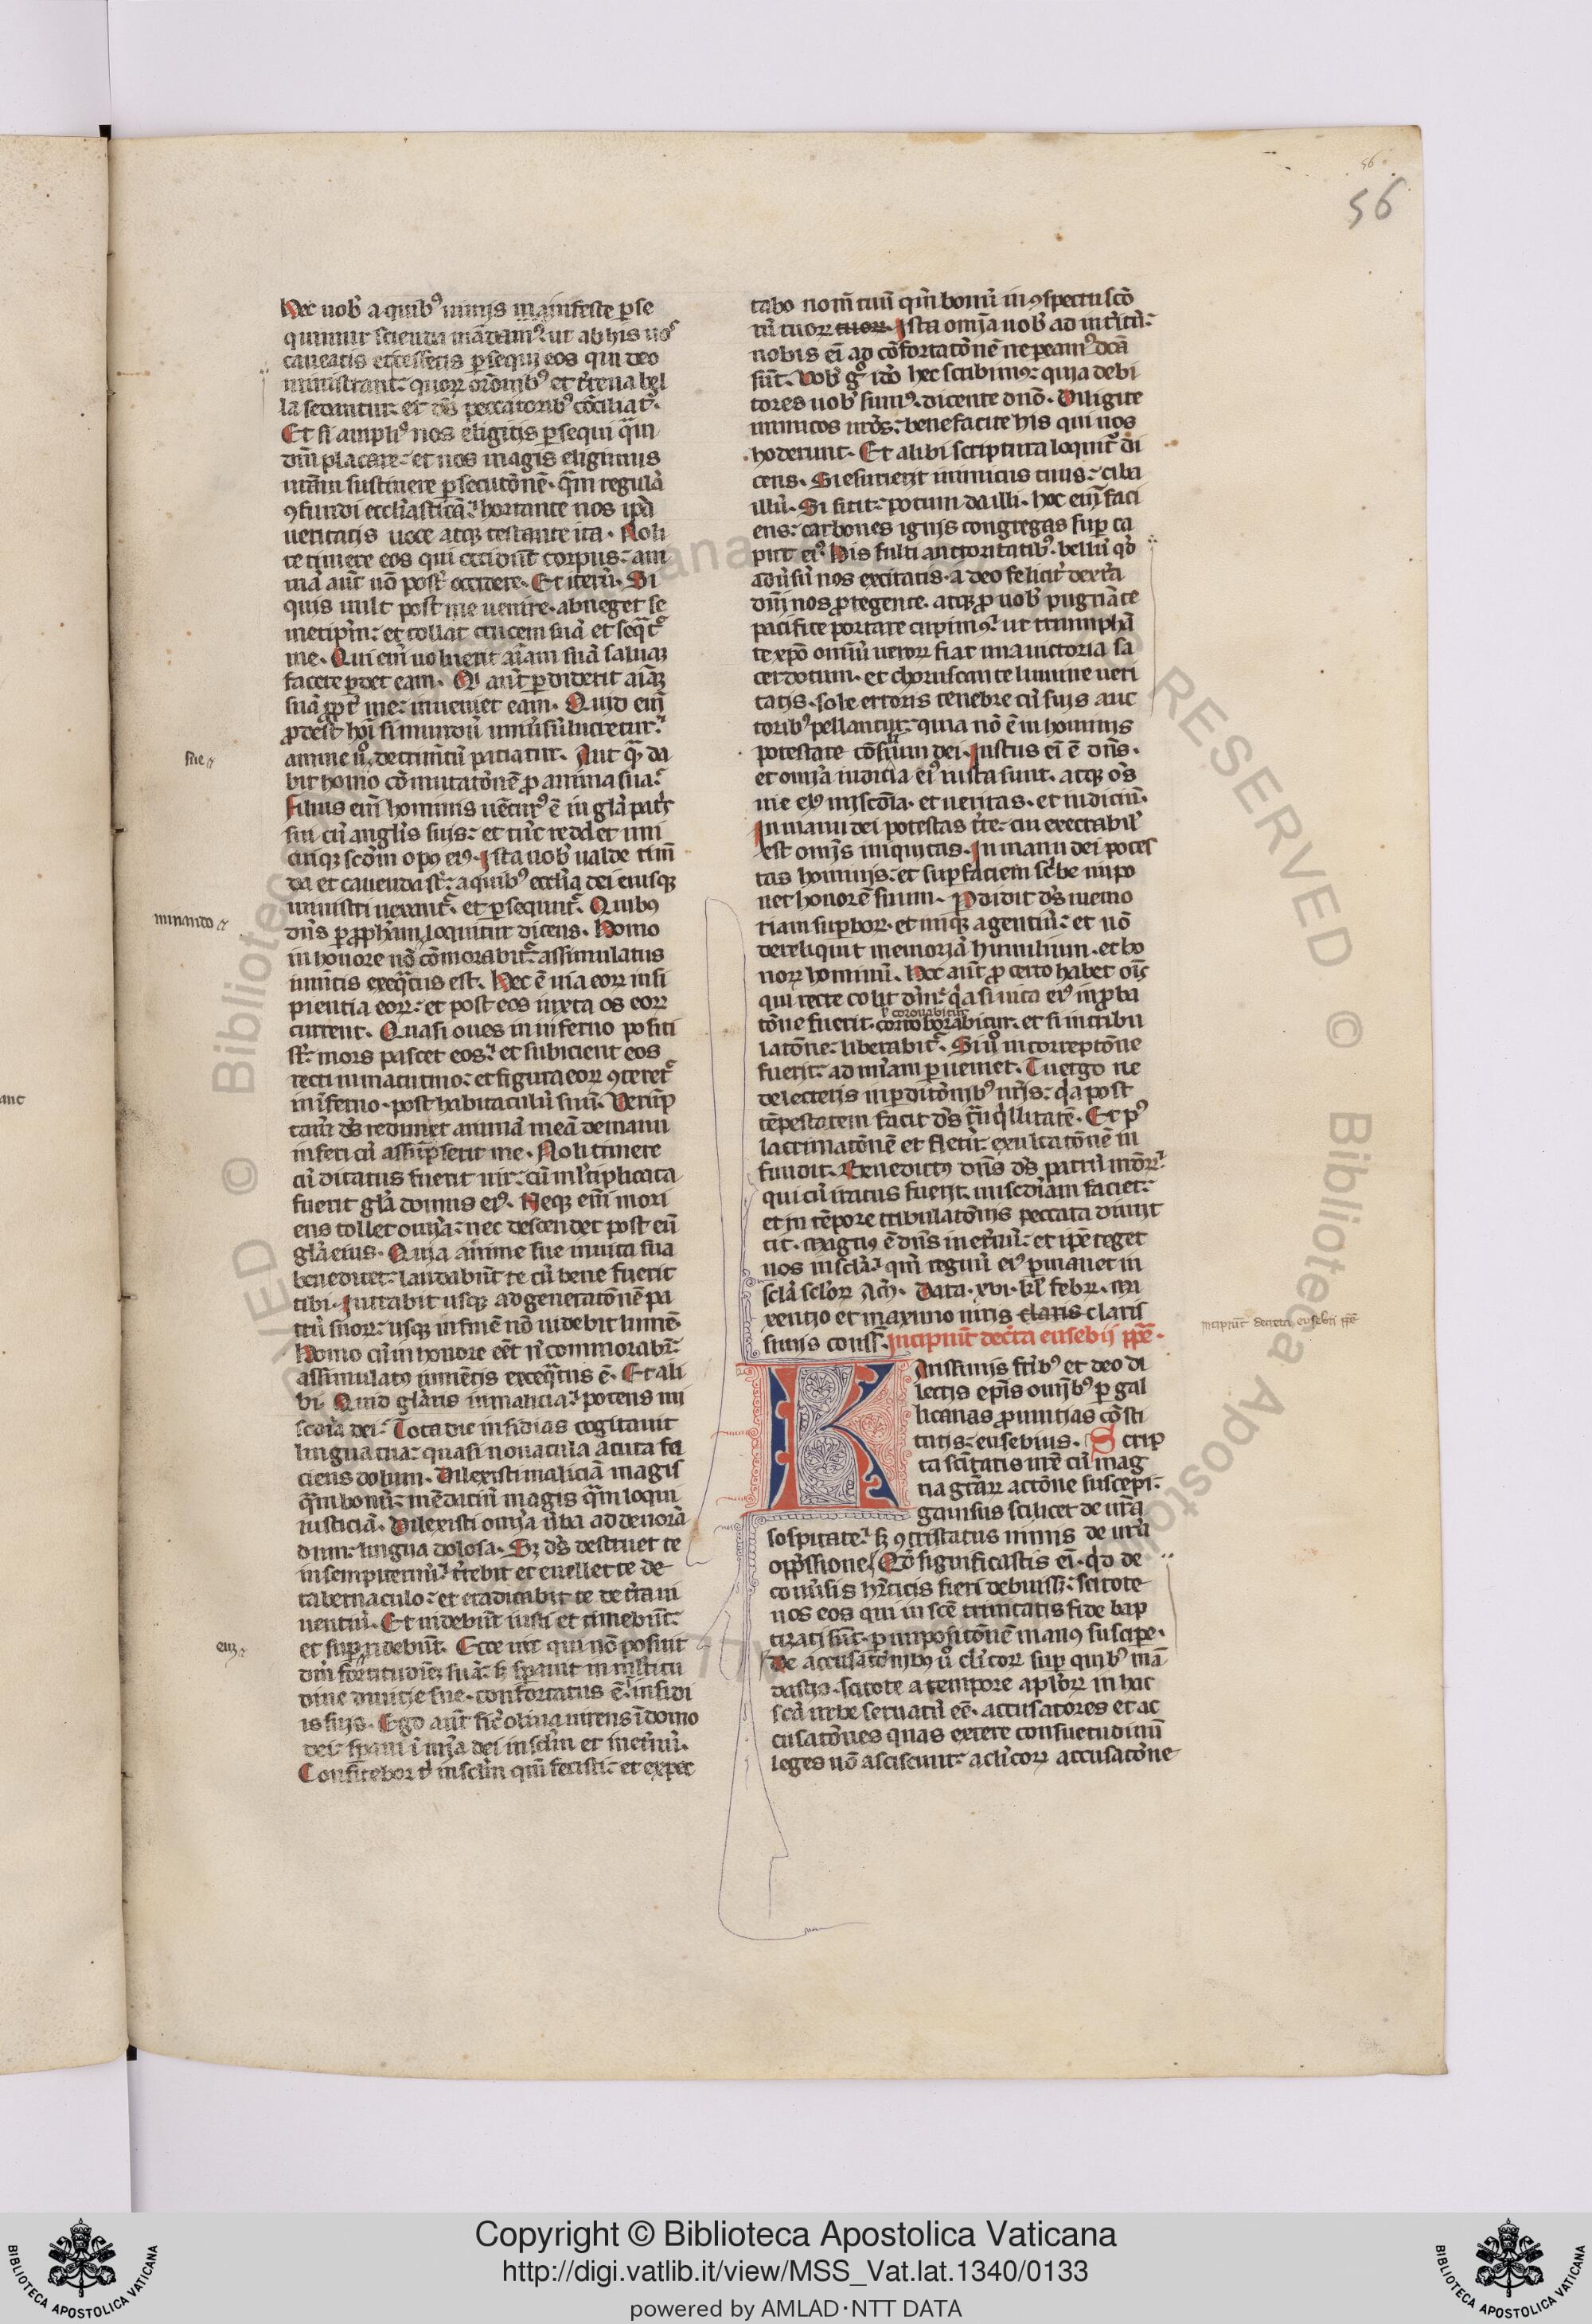 56
56
Hec uob̛ a quib⁹ nimijs manifeste p̱se
quimur scienda mādam⁹: ut ab his uos
caueatis et cessetis p̱sequi eos qui deo
ministrant: quoꝝ orōnib⁹ et t̛rena bel
la sedantur: et dn̄s peccatorib⁹ cōciliat̛.
Et si ampli⁹ nos eligitis p̱sequi q̄m
dn̄m placare: et nos magis eligimus
ur̄am sustinere p̱secutōnē. q̄m regulā
ꝯfundi eccl̛iasticā: hortante nos ip̄a
ueritatis uoce atqꝫ testante ita. Noli
te timere eos qui occidūt corpus: ani
mā aūt nō poss̄t occidere. Et iterū. Si
quis uult post me uenire. abneget se
metip̄m: et tollat crucem suā et seq̄t̛
me. Qui em̄ uoluerit aīam suā saluaꝫ
facere p̱det eam. Q̇ aūt p̱diderit aīaꝫ
suā ꝓpt̛ me: inueniet eam. Quid em̄
ꝓdest hoī si mundū uniūsū lucretur:
anime ū° detrim̄tū patiatur. Aut q̄ da
bit homo cōmutatōnē ꝓ anima sua:
Filius em̄ hominis uētur⁹ ē in gl̛a pat̛s
sui cū angl̛is suis: et tūc reddet uni
cuiqꝫ scd̄m op⁹ ei⁹. Ista uob̛ ualde tim̄
da et cauenda st̄: a quib⁹ eccl̛ia dei eiusqꝫ
ministri uexant̛. et p̱sequnt̛. Quib⁹
dn̄s p̱ ꝓph̄am loquitur dicens. Homo
in honore nō cōmorabit̛: assimulatus
iumētis exeq̄tus est. Hec ē uia eoꝝ insi
pientia eoꝝ: et post eos iuxta os eoꝝ
current. Quasi oues in inferno positi
st̄: mors pascet eos: et subicient eos
recti in matutino: et figura eoꝝ ꝯteret̛
in īferno. post habitaculū suū. Verūp
tam̄ ds̄ redimet animā meā de manu
inferi cū assūpserit me. Noli timere
cū ditatus fuerit uir: cū ml̛tiplicata
fuerit gl̛a domus ei⁹. Neqꝫ em̄ mori
ens tollet omīa: nec descendet post eū
gl̛a eius. Quia anime sue in uita sua
benedicet: laudabūt te cū bene fuerit
tibi. Intrabit usqꝫ ad generatōnē pa
trū suoꝝ: usqꝫ in finē nō uidebit lumē.
Homo cū in honore eēt n̄ commorabr̄:
assimulat⁹ iumētis exeq̄tus ē. Et ali
bi. Quid gl̛aris in malicia: potens mi
sc̄dia dei: Tota die insidias cogitauit
lingua tua: quasi nouacula acuta fa
ciens dolum. Dilexisti maliciā magis
q̄m bonū: mēdaciū magis q̄m loqui
iusticiā. Dilexisti omīa ūba ad deuorā
dum: lingua dolosa. Sꝫ ds̄ destruet te
in sempiternū: t̛rebit et euellet te de
tabernaculo: et eradicabit te de t̛ra ui
uentiū. Et uidebūt iusti et timebūt:
et sup̱ ridebūt. Ecce uir qui nō posuit
dn̄i fortitudīeꝫ suā: sꝫ sp̱auit in ml̛titu
dine diuitie sue. confortatus ē: insidi
is suijs. Ego aūt sic̄ oliua uirens ī domo
dei: sp̱aui ī mīa dei in scl̄m et in et̛nū.
Confitebor t̛ in scl̄m qm̄ fecisti: et expec
sue
minando
eiꝫ
tabo nom̄ tuū qm̄ bonū in ꝯspectu scō
rū tuoꝝ tuoꝝ. Ista omīa uob̛ ad int̛itū:
nobis eī ad cōfortatōnē ne peam⁹ dc̄a
sūt. Vob̛ g̊ id̄o hec scribim⁹: quia debi
tores uob̛ sum⁹. dicente dn̄o. Diligite
inimicos ur̄os: benefacite his qui uos
hoderunt. Et alibi scriptura loquit̛ di
cens. Si esurierit inimicus tuus: ciba
illū. Si sitit: potum da illi. hoc em̄ faci
ens: carbones ignis congregas sup̱ ca
put ei⁹. His fulti auctoritatib⁹. bellū qd̄
aduūsū nos excitatis. a deo felicit̛ dext̛a
dn̄i nos ꝓtegente. atqꝫ ꝓ uob̛ pugnāte
pacifice portare cupim⁹: ut triumphā
te xp̄o omiū ueroꝝ fiat una uictoria sa
cerdotum. et choruscante lumine ueri
tatis. sole erroris tenebre cū suis auc
torib⁹ pellantur: quia nō ē in hominis
potestate cōsilium dei. Iustus eī ē dn̄s.
et omīa iudicia ei⁹ iusta sunt. atqꝫ oīs
uie ei⁹ miscd̄ia. et ueritas. et iudiciū.
In manu dei potestas t̛re: cui exectabil̛
est omīs iniquitas. In manu dei potes
tas hominis: et sup̱ faciem sc̛be inpo
net honorē suum. P̱didit ds̄ memo
riam sup̱boꝝ. et iniqꝫ agentiū: et nō
dereliquit memoriā humilium. et bo
noꝝ hominū. Hoc aūt ꝓ certo habet oīs
qui recte colit dn̄m: q̄a si uita ei⁹ in ꝓba
coronabitur
tōne fuerit. corroborabitur. et si in tribu
latōne: liberabit̛. Si ū° in correptōne
fuerit: ad mīam p̱ueniet. Tu ergo ne
delecteris in p̱ditōnib⁹ nr̄is: q̄a post
tēpestatem facit ds̄ trāq̄llitatē. Et p⁹
lacrimatōnē et fletū: exultatōnē in
fundit. Benedict⁹ dn̄s ds̄ patrū nr̄oꝝ:
qui cū iratus fuerit. miscd̄iam faciet:
et in tēpore tribulatōnis peccata dimit
tit. Magn⁹ ē dn̄s in et̛nū: et ip̄e reget
nos in scl̄a: qm̄ regnū ei⁹ p̱manet in
scl̄a scl̄oꝝ Am̄. Data. xvi. kl̛ febꝝ. ma
xentio et maximo uiris claris claris
simis conss̄. Incipiūt decr̄ta eusebij pp̄e.
Incipiūt decreta eusebii pp̄e
K Arissimis fr̄ib⁹ et deo di
lectis ep̄is omīb⁹ p̱ gal
licanas ꝓuintias cōsti
tutis: eusebius. Scrip
ta sc̄itatis ur̄e cū mag
na gr̄aꝝ actōne suscepi:
gauisus scilicet de ur̄a
sospitate: sꝫ ꝯtristatus nimis de ur̄a
opp̄ssione. Qd̄ significastis eī. q̇d de
conūsis hr̄eticis fieri debuissꝫ: scitote
nos eos qui in scē trinitatis fide bap
tizati sūt. p̱ inpositōnē man⁹ suscipe.
De accusatōnib⁹ ū° cl̛icoꝝ sup̱ quib⁹ mā
dastis. scitote a tempore apl̛oꝝ in hac
scā urbe seruatū eē. accusatores et ac
cusatōnes quas extere consuetudinū
leges nō asciscunt: a cl̛icoꝝ accusatōne
Copyright © Biblioteca Apostolica Vaticana
http://digi.vatlib.it/view/MSS_Vat.lat.1340/0133
powered by AMLAD·NTT DATA
BIBLIOTECA APOSTOLICA VATICANA
BIBLIOTECA APOSTOLICA VATICANA